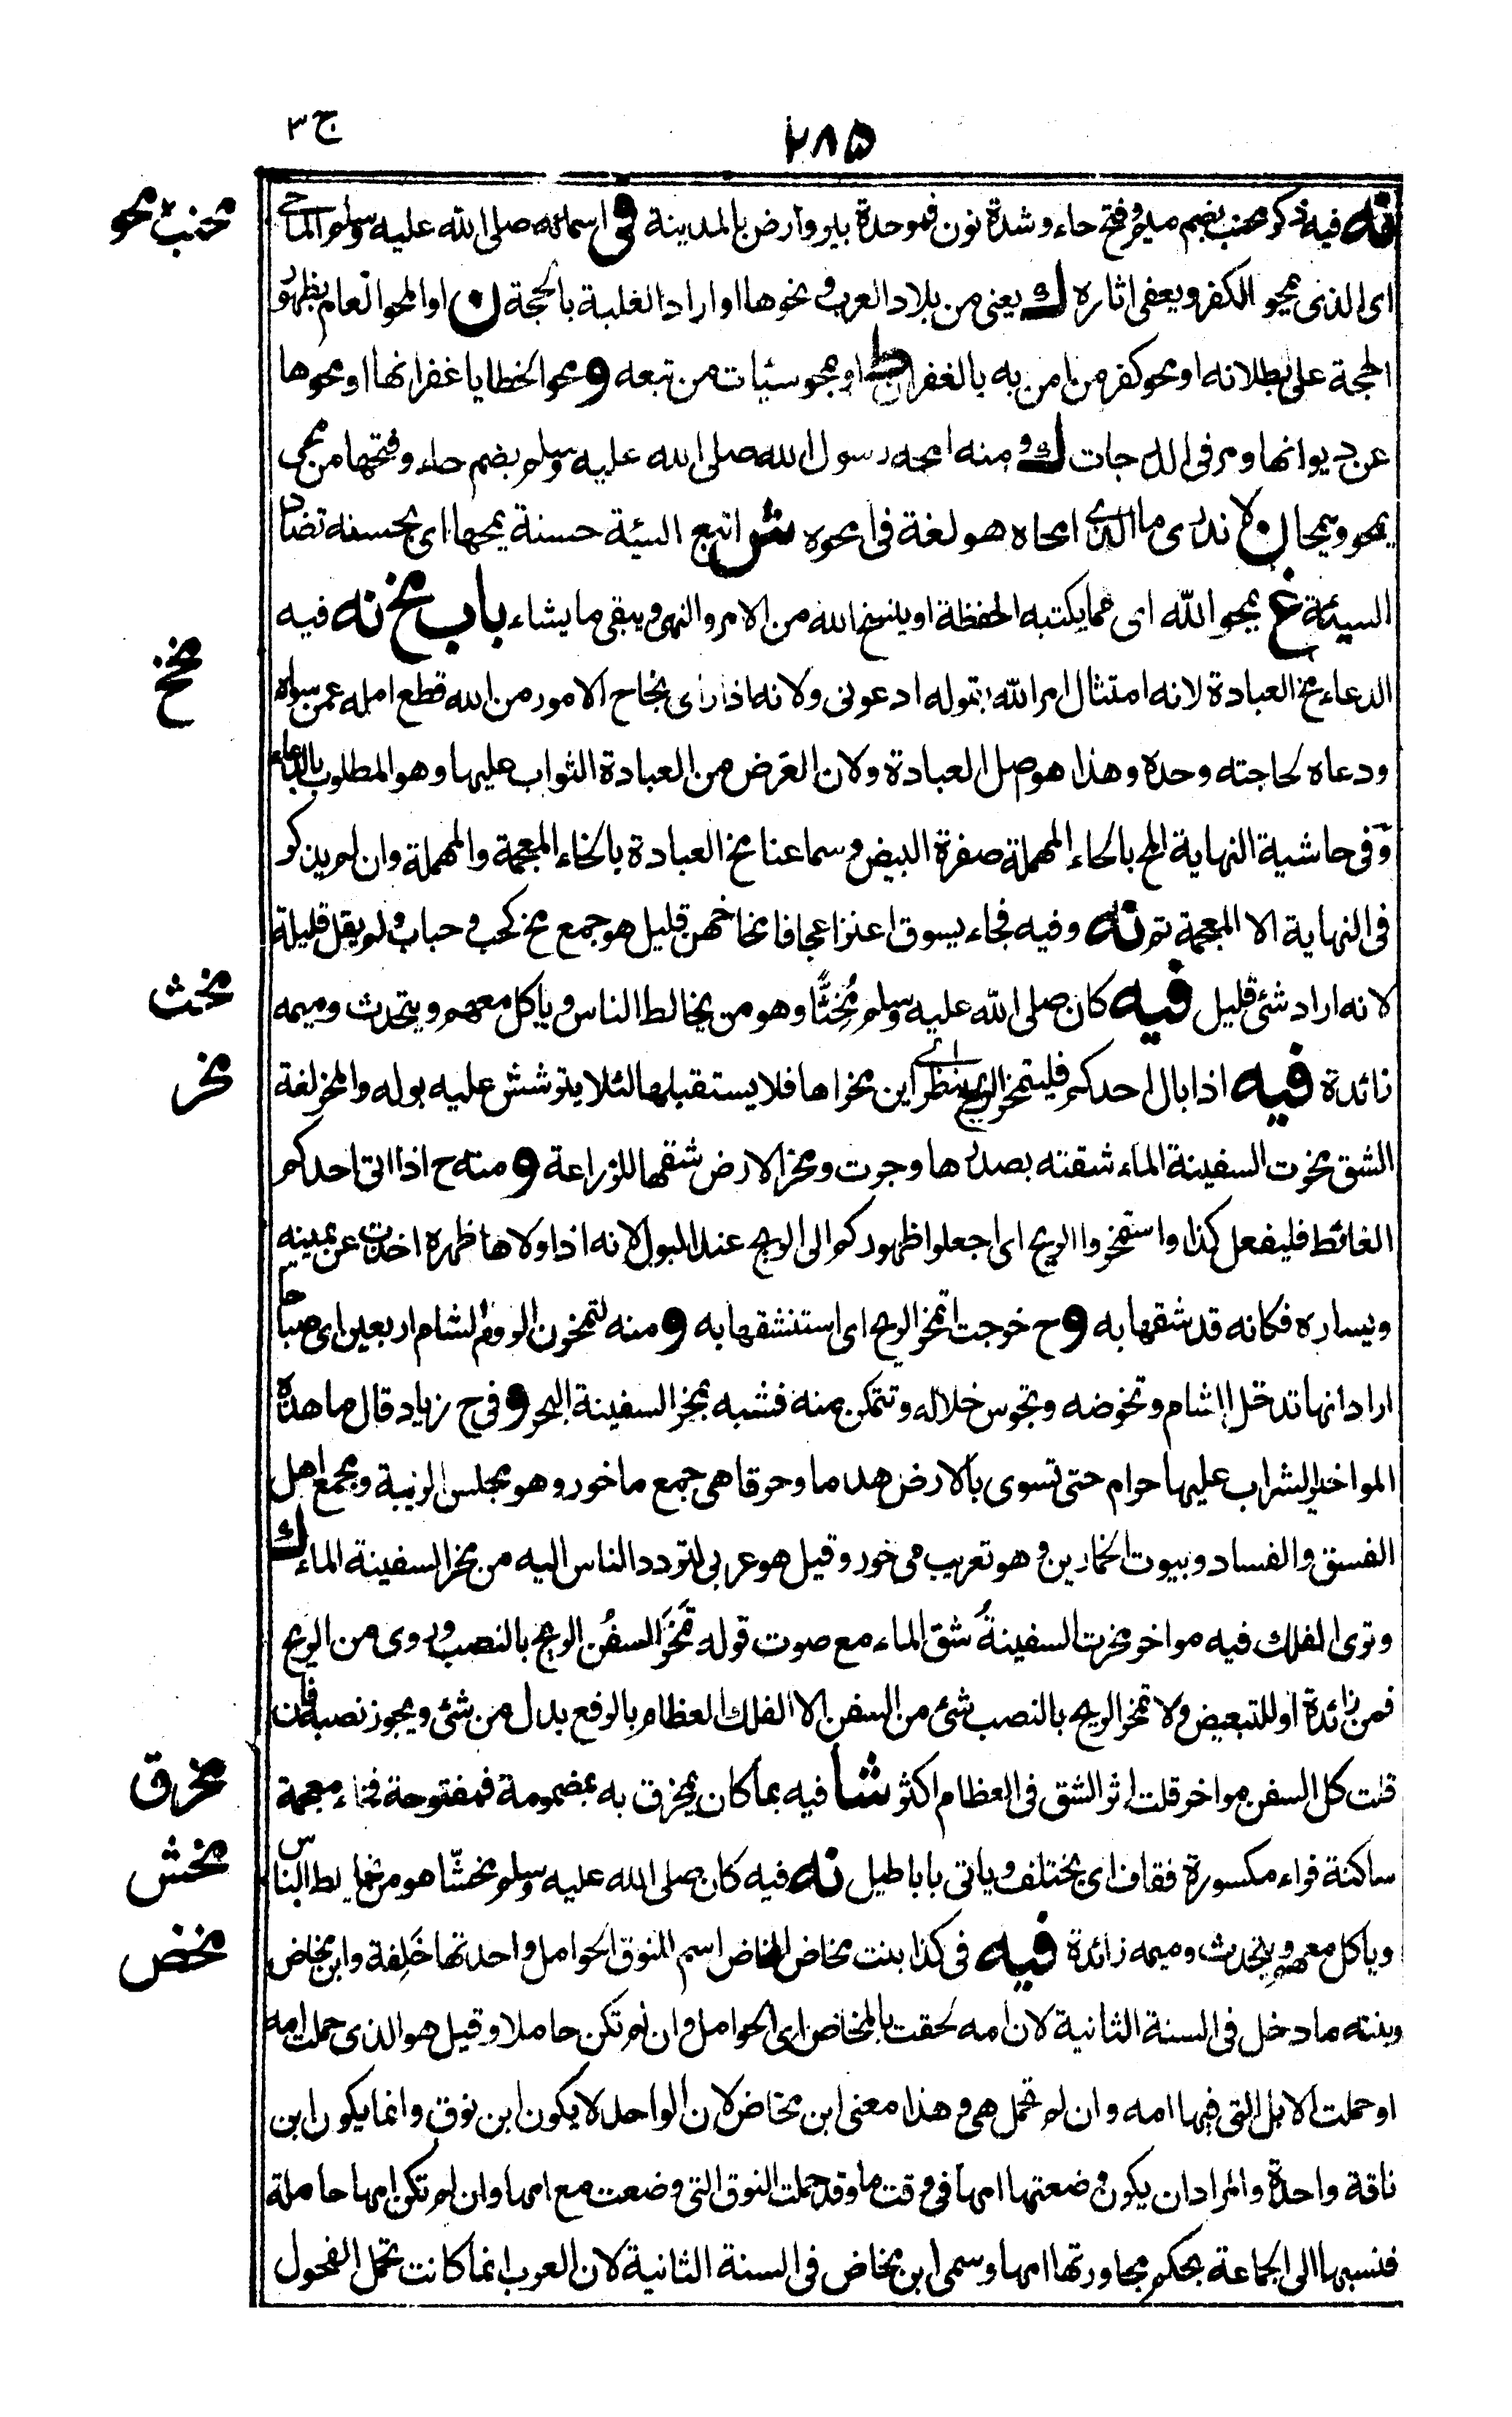 ٢٨٥
ج ٣
نه فيه ذكر محنب بضم ميم وفتح حاء وشدة نون فموحدة بير وارض بالمدينة في اسمائه صلى الله عليه وسلم الماحي
اى الذى يمحو الكفر ويعفى اثاره ك يعنى من بلاد العرب ونحوها او اراد الغلبة بالحجة ن او المحو العام بظهور
الحجة على بطلانه او بمحو كفر من امن به بالغفران ط او يمحو سيئات من تبعه و محو الخطايا غفرانها او محوها
عن ديوانها ومر فى الدرجات ك و منه امحه رسول الله صلى الله عليه وسلم بضم حاء وفتحها من محى
يمحو ويمحا ن لا ندرى ما الذى امحاه هو لغة فى امحوه ش اتبع السيئة حسنة يمحها اى بحسنه تضاد
السيئة غ يمحو الله اى مما يكتبه الحفظة او ينسخ الله من الامر والنهى ويبقى ما يشاء باب مخ نه فيه
الدعاء مخ العبادة لانه امتثال امر الله بقوله ادعونى ولانه اذا راى نجاح الامور من الله قطع امله عمن سواه
ودعاه لحاجته وحده وهذا هو اصل العبادة ولان الغرض من العبادة الثواب عليها وهو المطلوب بالدعاء
و فى حاشية النهاية المح بالحاء المهملة صفرة البيض وسماعنا مخ العبادة بالخاء المعجمة والمهملة وان لم يذكر
فى النهاية الا المعجمة تم نه وفيه فجاء يسوق اعنزا عجافا مخاخهن قليل هو جمع مخ كحب وحباب ولم يقل قليلة
لانه اراد شئ قليل فيه كان صلى الله عليه وسلم مُخِثًّا وهو من يخالط الناس وياكل معهم ويتحدث وميمه
زائدة فيه اذا بال احدكم فليتمخر الريح اى ينظر اين مجراها فلا يستقبلها لئلا يترشش عليه بوله والمخر لغة
الشق مخرت السفينة الماء شقته بصدرها وجرت ومخر الارض شقها للزراعة و منه ح اذا اتى احدكم
الغائط فليفعل كذا واستمخروا الريح اى اجعلوا ظهوركم الى الريح عند البول لانه اذا ولاها ظهره اخذت عن يمينه
ويساره فكانه قد شقها به و ح خرجت اتمخر الريح اى استنشقها به و منه لتمخرن الروم الشام اربعين اى صباحا
اراد انها تدخل الشام وتخوضه وتجوس خلاله وتتمكن منه فشبه بمخر السفينة البحر و فى ح زياد قال ما هذه
المواخير الشراب عليها حرام حتى تسوى بالارض هدما وحرقا هى جمع ماخور وهو مجلس الريبة ومجمع اهل
الفسق والفساد وبيوت الخمارين وهو تعريب مى خور وقيل هو عربى لتردد الناس اليه من مخر السفينة الماء ك
وترى الفلك فيه مواخر مخرت السفينةُ شق الماء مع صوت قوله تَمْخَرُ السفُن الريح بالنصب وروى من الريح
فمن زائدة او للتبعيض ولا تمخر الريح بالنصب شئ من السفن الا الفلك العظام بالرفع بدل من شئ ويجوز نصبه فان
قلت كل السفن مواخر قلت اثر الشق فى العظام اكثر شا فيه بما كان يمخرق به بمضمومة فمفتوحة فخاء معجمة
ساكنة فراء مكسورة فقاف اى يختلف وياتى باباطيل نه فيه كان صلى الله عليه وسلم مخشّا هو من يخالط الناس
وياكل معهم ويتحدث وميمه زائدة فيه فى كذا بنت مخاض المخاض اسم للنوق الحوامل واحدتها خَلِفة وابن مخاض
وبنته ما دخل فى السنة الثانية لان امه لحقت بالمخاض اى الحوامل وان لم تكن حاملا وقيل هو الذى حملت امه
او حملت الابل التى فيها امه وان لم تحمل هى وهذا معنى ابن مخاض لان الواحد لا يكون ابن نوق وانما يكون ابن
ناقة واحدة والمراد ان يكون وضعتها امها فى وقت ما وقد حملت النوق التى وضعت مع امها وان لم تكن امها حاملة
فنسبها الى الجماعة بحكم مجاورتها امها وسمى ابن مخاض فى السنة الثانية لان العرب انما كانت تحمل الفحول
محنب محو
مخخ
مخث
مخر
مخرق
مخش
مخض